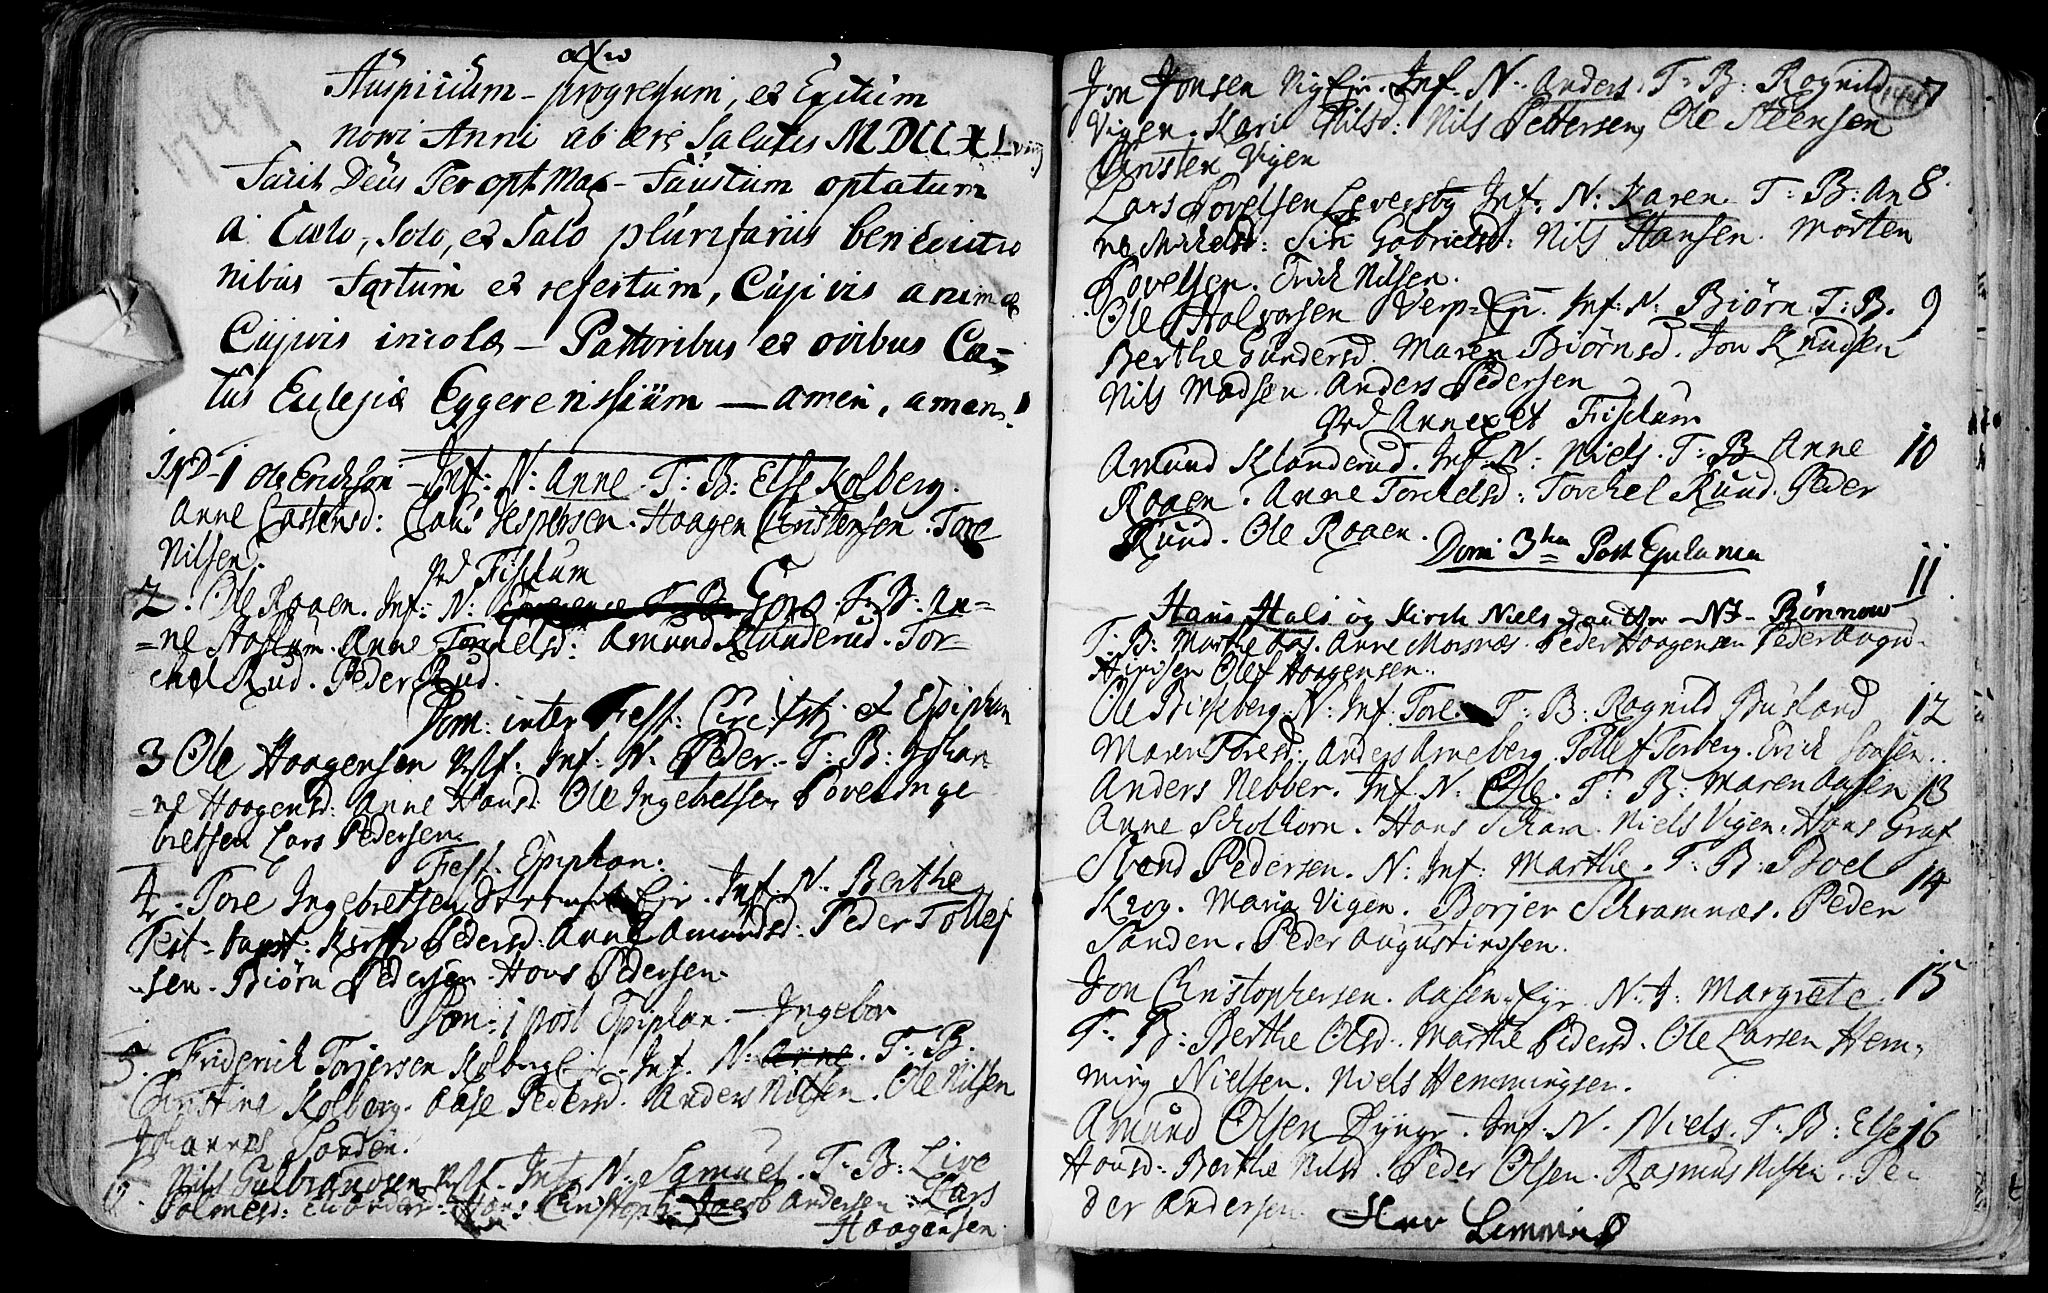 1749
αχω
Auspicium - progressum, et Exitum
novi Anni ab ære Salutis MDCCXLviiij
Faxit Deus Ter opt Max - Faustum optatum
a Cælo, Solo, et Salo plurifariis benedictio
nibus Fartum et refertum, Cujusvis animæ
Cujusvis incolæ - Pastoribus et ovibus Cæ-
tus Eclesiæ Eggerensium - amen, amen!
1 Ole Erichsen - Inf: N: Anne. T: B: Else Kolberg.
Anne Castensd: Claus Jespersen. Haagen Christensen. Tore
Nilsen.
Ved Fiskum
2. Ole Roaen. Inf: N: Gorо. T: B: An=
=ne Hoflum. Anne Torckelsd: Amund Klunderud. Tor=
chel Rud. Peder Rud.
Dom: inter Fest: Circ: Xsti et Epiphan
3 Ole Haagensen Inf: N: Peder. T: B: Johan=
=ne Haagensd: Anne Hansd: Ole Ingebretsen Povel Inge
bretsen Lars Pedersen.
Fest: Epiphan:
4. Tore Ingebretsen Ejr. Inf. N. Berthe
Test: bapt: Kirstj Pedersd: Anne Amundsd: Peder Tollef
sen. Biörn Pedersen. Hans Pedersen.
Dom: 1 post Epiphan. Ingebor
5. Friderich Torjersen Kolberg Ejr. Inf. N: Anne. T: B.
Christine Kolberg. Aase Pedersd. Anders Nilsen. Ole Nilsen
Johannes Sanden.
6. Nils Gulbrandsen Inf: N: Samuel. T: B: Live
Hans Christoph: Jacob Andersen. Lars
Haagensen.
144
Jon Jonsen Vig Ejr. Inf. N. Anders. T: B: Rognild 7
Vigen. Kari Nilsd: Nils Pettersen, Ole Steensen
Christen Vigen
Lars Povelsen Leversby Inf. N: Karen T: B: An 8.
ne Michelsd: Siri Gabrielsd: Nils Hansen. Morten
Povelsen. Erich Nilsen.
Ole Halvorsen Verp-Ejr. Inf: N: Biörn. T: B. 9
Berthe Gundersd. Maren Biörnsd. Jon Knudsen
Nils Madsen. Anders Pedersen
Ved Annexet Fiskum
Amund Klanderud. Inf: N: Niels. T: B Anne 10
Roaen. Anne Torchelsd: Torchel Ruud. Peder
Ruud. Ole Roaen.
Domi 3tia Post Epiphania
11
Hans Hals og Kirch Niels daatter - NJ - Rönnow
T: B: Marthe Aas. Anne Morsnæs. Peder Haagensen Peder Augu-
stinsen Olef Haagensen..
Ole Birkeberg. N: Inf: Tore. T: B: Rognild Busland 12
Maren Toresd: Anders Arneberg. Tollef Torberg. Erich Jonsen..
Anders Nebber. Inf. N: Ole. T: B: Maren Aasen 13
Anne Scholkorn. Hans Schram. Niels Vigen. Hans Graf
Svend Pedersen. N: Inf: Marthe. T: B: Boel 14
Krog. Maria Vigen. Borjer Schramnæs. Peder
Sanden. Peder Augustinssen.
Jon Christophersen. Aasen. Ejr. N. J: Margrete. 15
T: B: Berthe Olsd. Marthe Pedersd. Ole Larsen Hem-
ming Nielsen. Niels Hemmingsen.
Amund Olsen Inf. N. Niels. T: B: Else 16
Hansd: Berthe Nilsd. Peder Olsen. Rasmus Nilsen. Pe-
der Andersen.